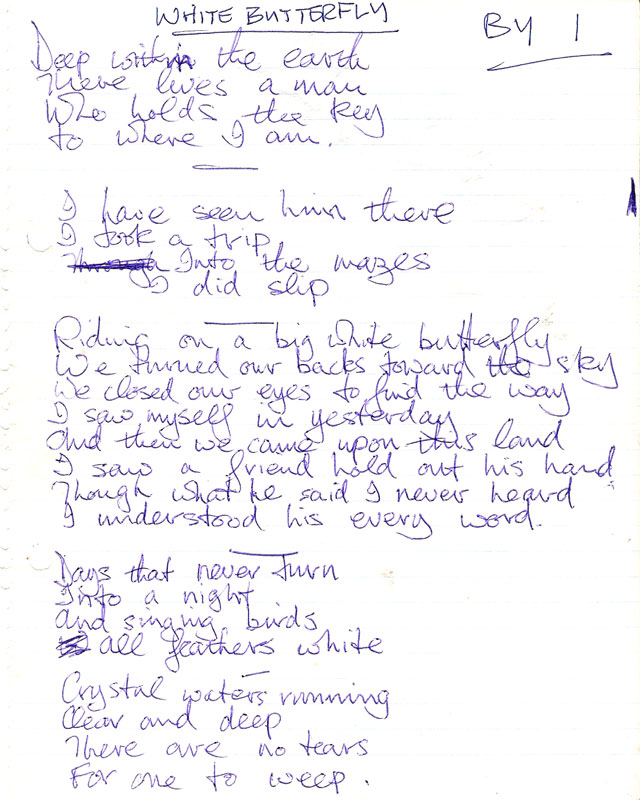 WHITE BUTTERFLY
BY 1
Deep within the earth
There lives a man
Who holds the key
to where I am.
I have seen him there
I took a trip
Through Into the mazes
I did slip
Riding on a big white butterfly
We turned our backs toward the sky
We closed our eyes to find the way
I saw myself in yesterday
And then we came upon this land
I saw a friend hold out his hand
Though what he said I never heard
I understood his every word.
Days that never turn
Into a night
and singing birds
all feathers white
Crystal waters running
Clear and deep
There are no tears
For one to weep.